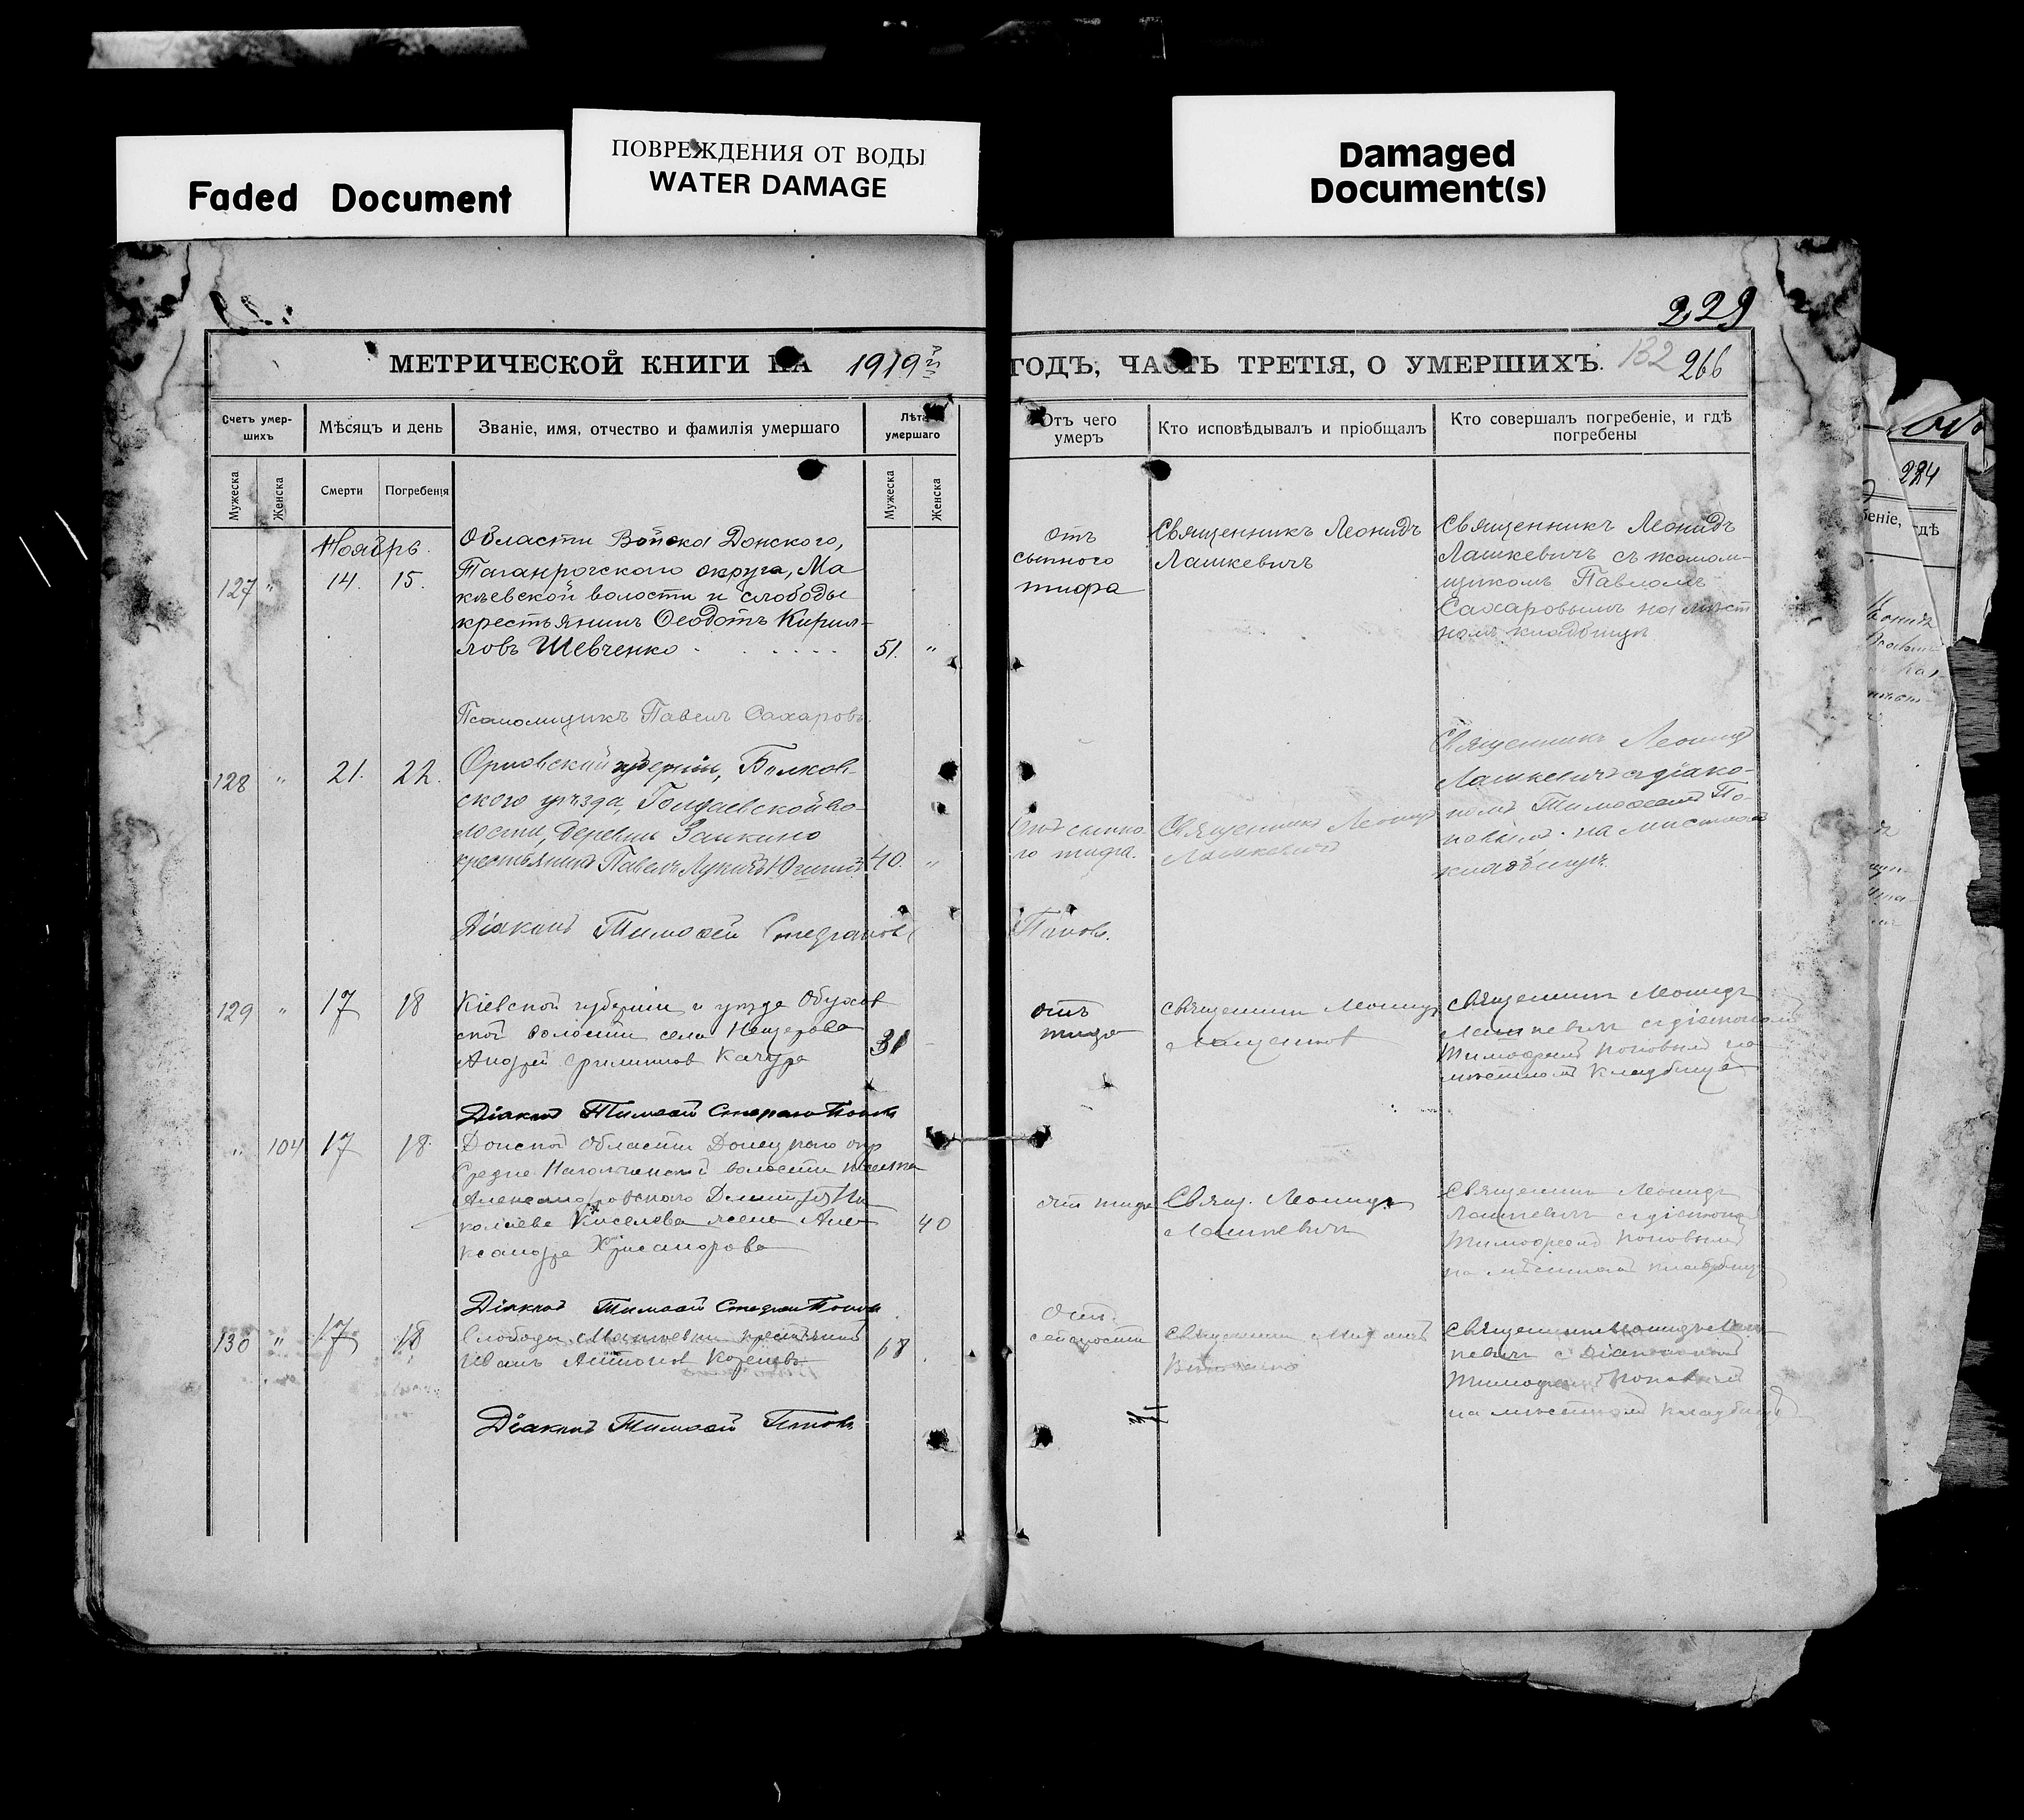 Faded Document
ПОВРЕЖДЕНИЯ ОТ ВОДЫ
WATER DAMAGE
Damaged
Document(s)
229
МЕТРИЧЕСКОЙ КНИГИ НА 1919
ГОДЪ, ЧАСТЬ ТРЕТІЯ, О УМЕРШИХЪ. 132 266
Счетъ умер-
шихъ
Мѣсяцъ и день
Званіе, имя, отчество и фамилія умершаго
Лѣта
умершаго
Отъ чего
умеръ
Кто исповѣдывалъ и пріобщалъ
Кто совершалъ погребеніе, и гдѣ
погребены
Мужеска
Женска
Смерти
Погребенія
Мужеска
Женска
Ноябрь.
127 " 14. 15.
Области Войска Донского,
Таганрогскаго округа, Ма
кѣевской волости и слободы
крестьянинъ Ѳеодотъ Кирил-
ловъ Шевченко
51. "
отъ
сыпного
тифа
Священникъ Леонидъ
Лашкевичъ
Священникъ Леонидъ
Лашкевичъ съ псалом-
щикомъ Павломъ
Сахаровымъ на мѣст
номъ кладбищѣ
Псаломщикъ Павелъ Сахаровъ.
128 " 21. 22.
Орловской губерніи, Болхов-
ского уѣзда, во-
лости, деревни
крестьянинъ Павелъ
40. "
отъ сыпно
го тифа.
Священникъ Леонидъ
Лашкевичъ
Священникъ Леонидъ
Лашкевичъ съ діако-
номъ Тимоѳеемъ По-
повымъ на мѣстномъ
кладбищѣ.
Діаконъ Тимоѳей Стефановъ
Поповъ.
129 " 17 18
Кіевской губерніи и уѣзда Обухов
ской волости села
Андрей Качура
31
отъ
тифа
священникъ Леонидъ
священникъ Леонидъ
Лашкевичъ съ діакономъ
Тимофеемъ Поповымъ на
мѣстномъ кладбищѣ
Діаконъ Тимоѳей Стефановъ Поповъ
" 104 17 18
Донской Области Донецкаго окр
волости поселка
Александровскаго Дмитрія Ни
колаева Киселева жена Але
ксандра Хрисанфова
40
отъ тифа
Свящ. Леонидъ
Лашкевичъ
Священникъ Леонидъ
Лашкевичъ съ діакономъ
Тимофеемъ Поповымъ
на мѣстномъ кладбищѣ
Діаконъ Тимоѳей Стефановъ Поповъ
130 " 17 18
Слободы Макѣевки крестьянинъ
Иванъ Антоновъ
68
отъ
священникъ
священникъ Леонидъ Лаш
кевичъ с Діакономъ
Тимофеемъ Поповымъ
на мѣстномъ кладбищѣ
Діаконъ Тимоѳей Поповъ
224
беніе, гдѣ